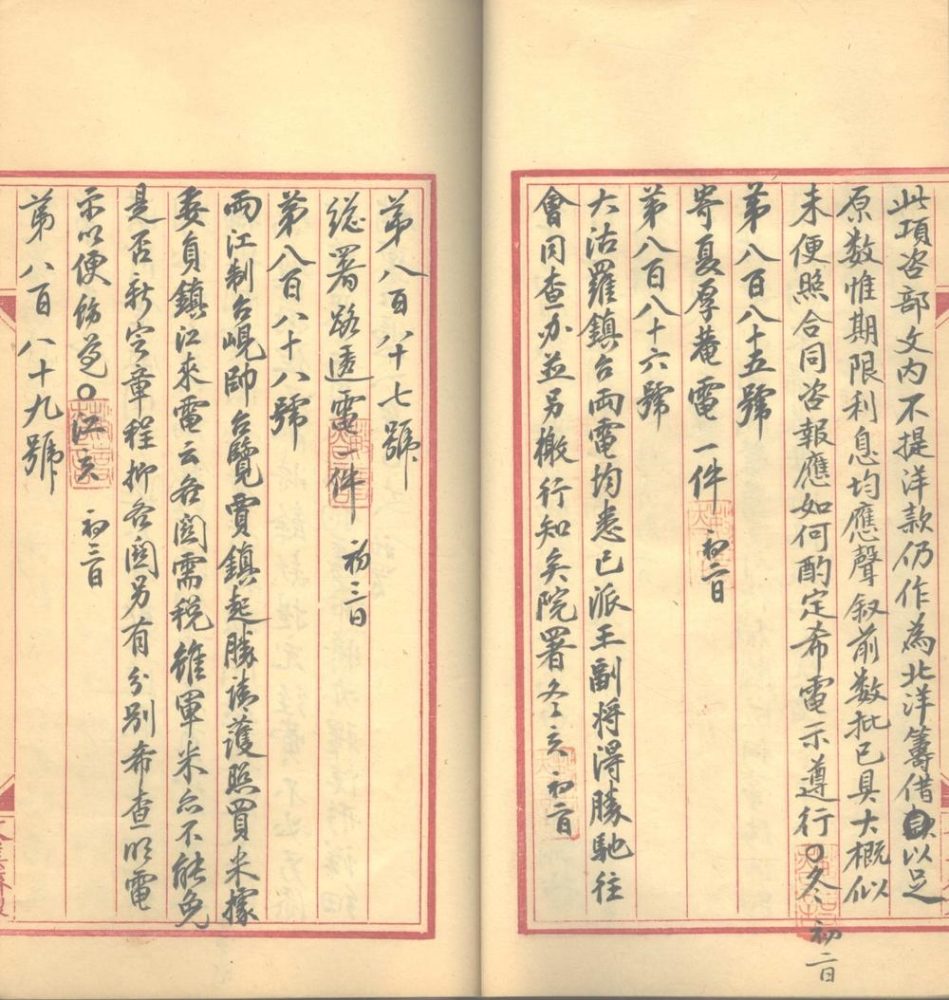 此項咨部文内不提洋款仍作為北洋籌借以足
原数惟期限利息均應聲叙前数批已具大概似
未便照合同咨報應如何酌定希電示遵行〇冬
初二日
第八百八十五號
寄夏厚菴電一件 初二日
第八百八十六號
大沽羅鎮台两電均悉已派王副将得勝馳往
會同查办並另檄行知矣院署冬亥 初二日
第八百八十七號
総署路透電一件 初三日
第八百八十八號
两江制台峴帥台覽賈鎮起勝請護照買米據
委員鎮江來電云各関需税雖軍米亦不能免
是否新定章程抑各関另有分别希查明電
示以便飭遵〇江亥 初三日
第八百八十九號